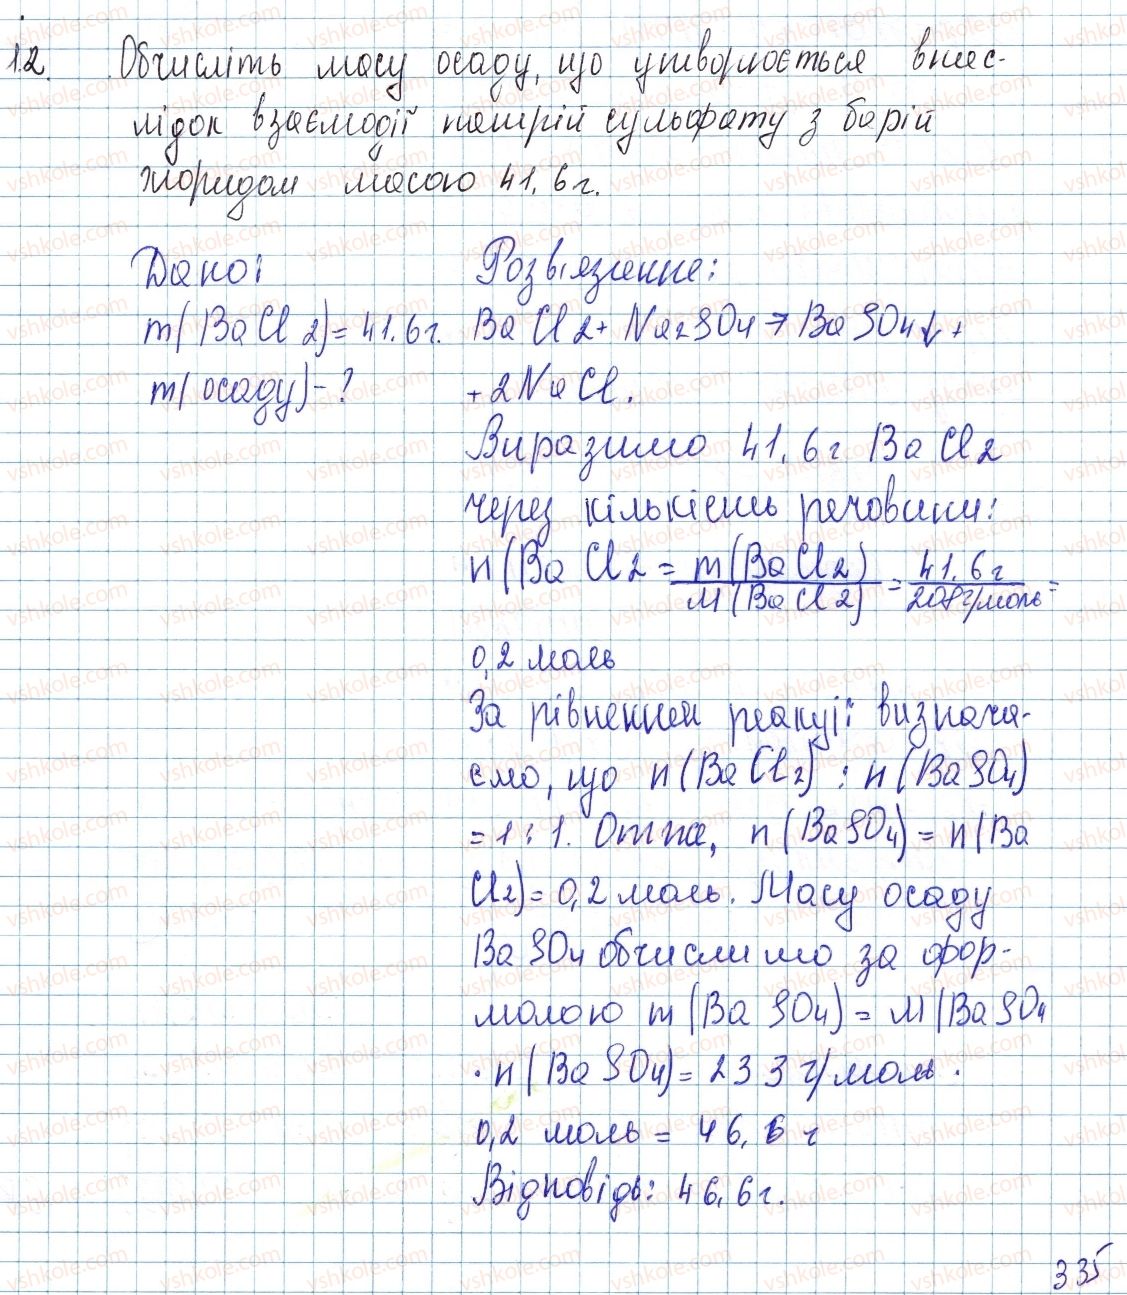 12. Обчисліть масу осаду, що утворюється внас-
лідок взаємодії натрій сульфату з барій
хлоридом масою 41,6 г.
Дано:
m(BaCl2)=41.6г.
m(осаду)-?
Розв'язання:
BaCl2+Na2SO4→BaSO4↓+
+2NaCl.
Виразимо 41,6 г BaCl2
через кількість речовини:
n(BaCl2 = m(BaCl2) / M(BaCl2) = 41.6г / 208г/моль =
0,2 моль
За рівнянням реакції визнача-
ємо, що n(BaCl2) : n(BaSO4)
=1:1. Отже, n(BaSO4)=n(Ba
Cl2)=0,2 моль. Масу осаду
BaSO4 обчислимо за фор-
молою m(BaSO4)=M(BaSO4
·n(BaSO4)=233 г/моль·
0,2 моль = 46,6 г
Відповідь: 46,6г.
335